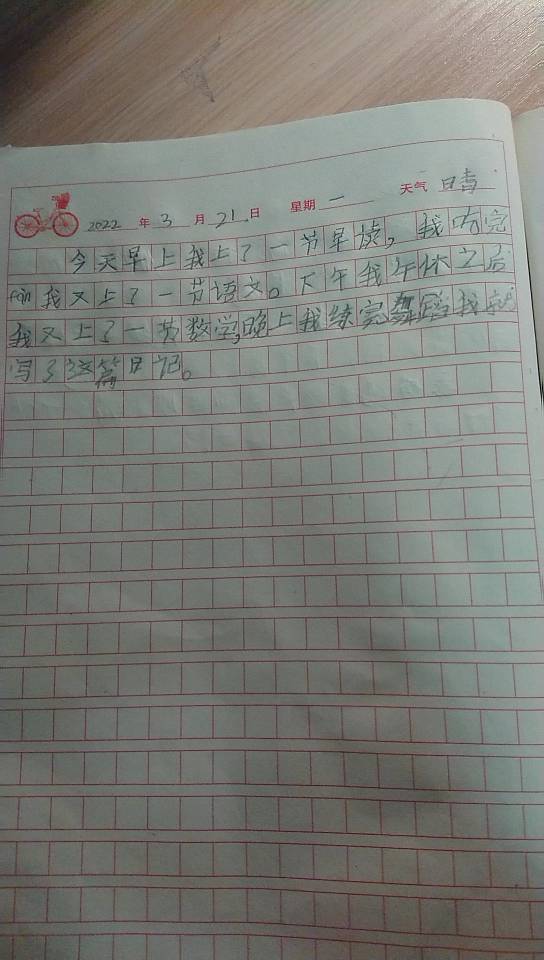 2022 年 3 月 21 日 星期 一 天气 晴
今天早上我上了一节早读,我吃完
fàn我又上了一节语文。下午我午休之后
我又上了一节数学,晚上我练完舞蹈我就
写了这篇日记。